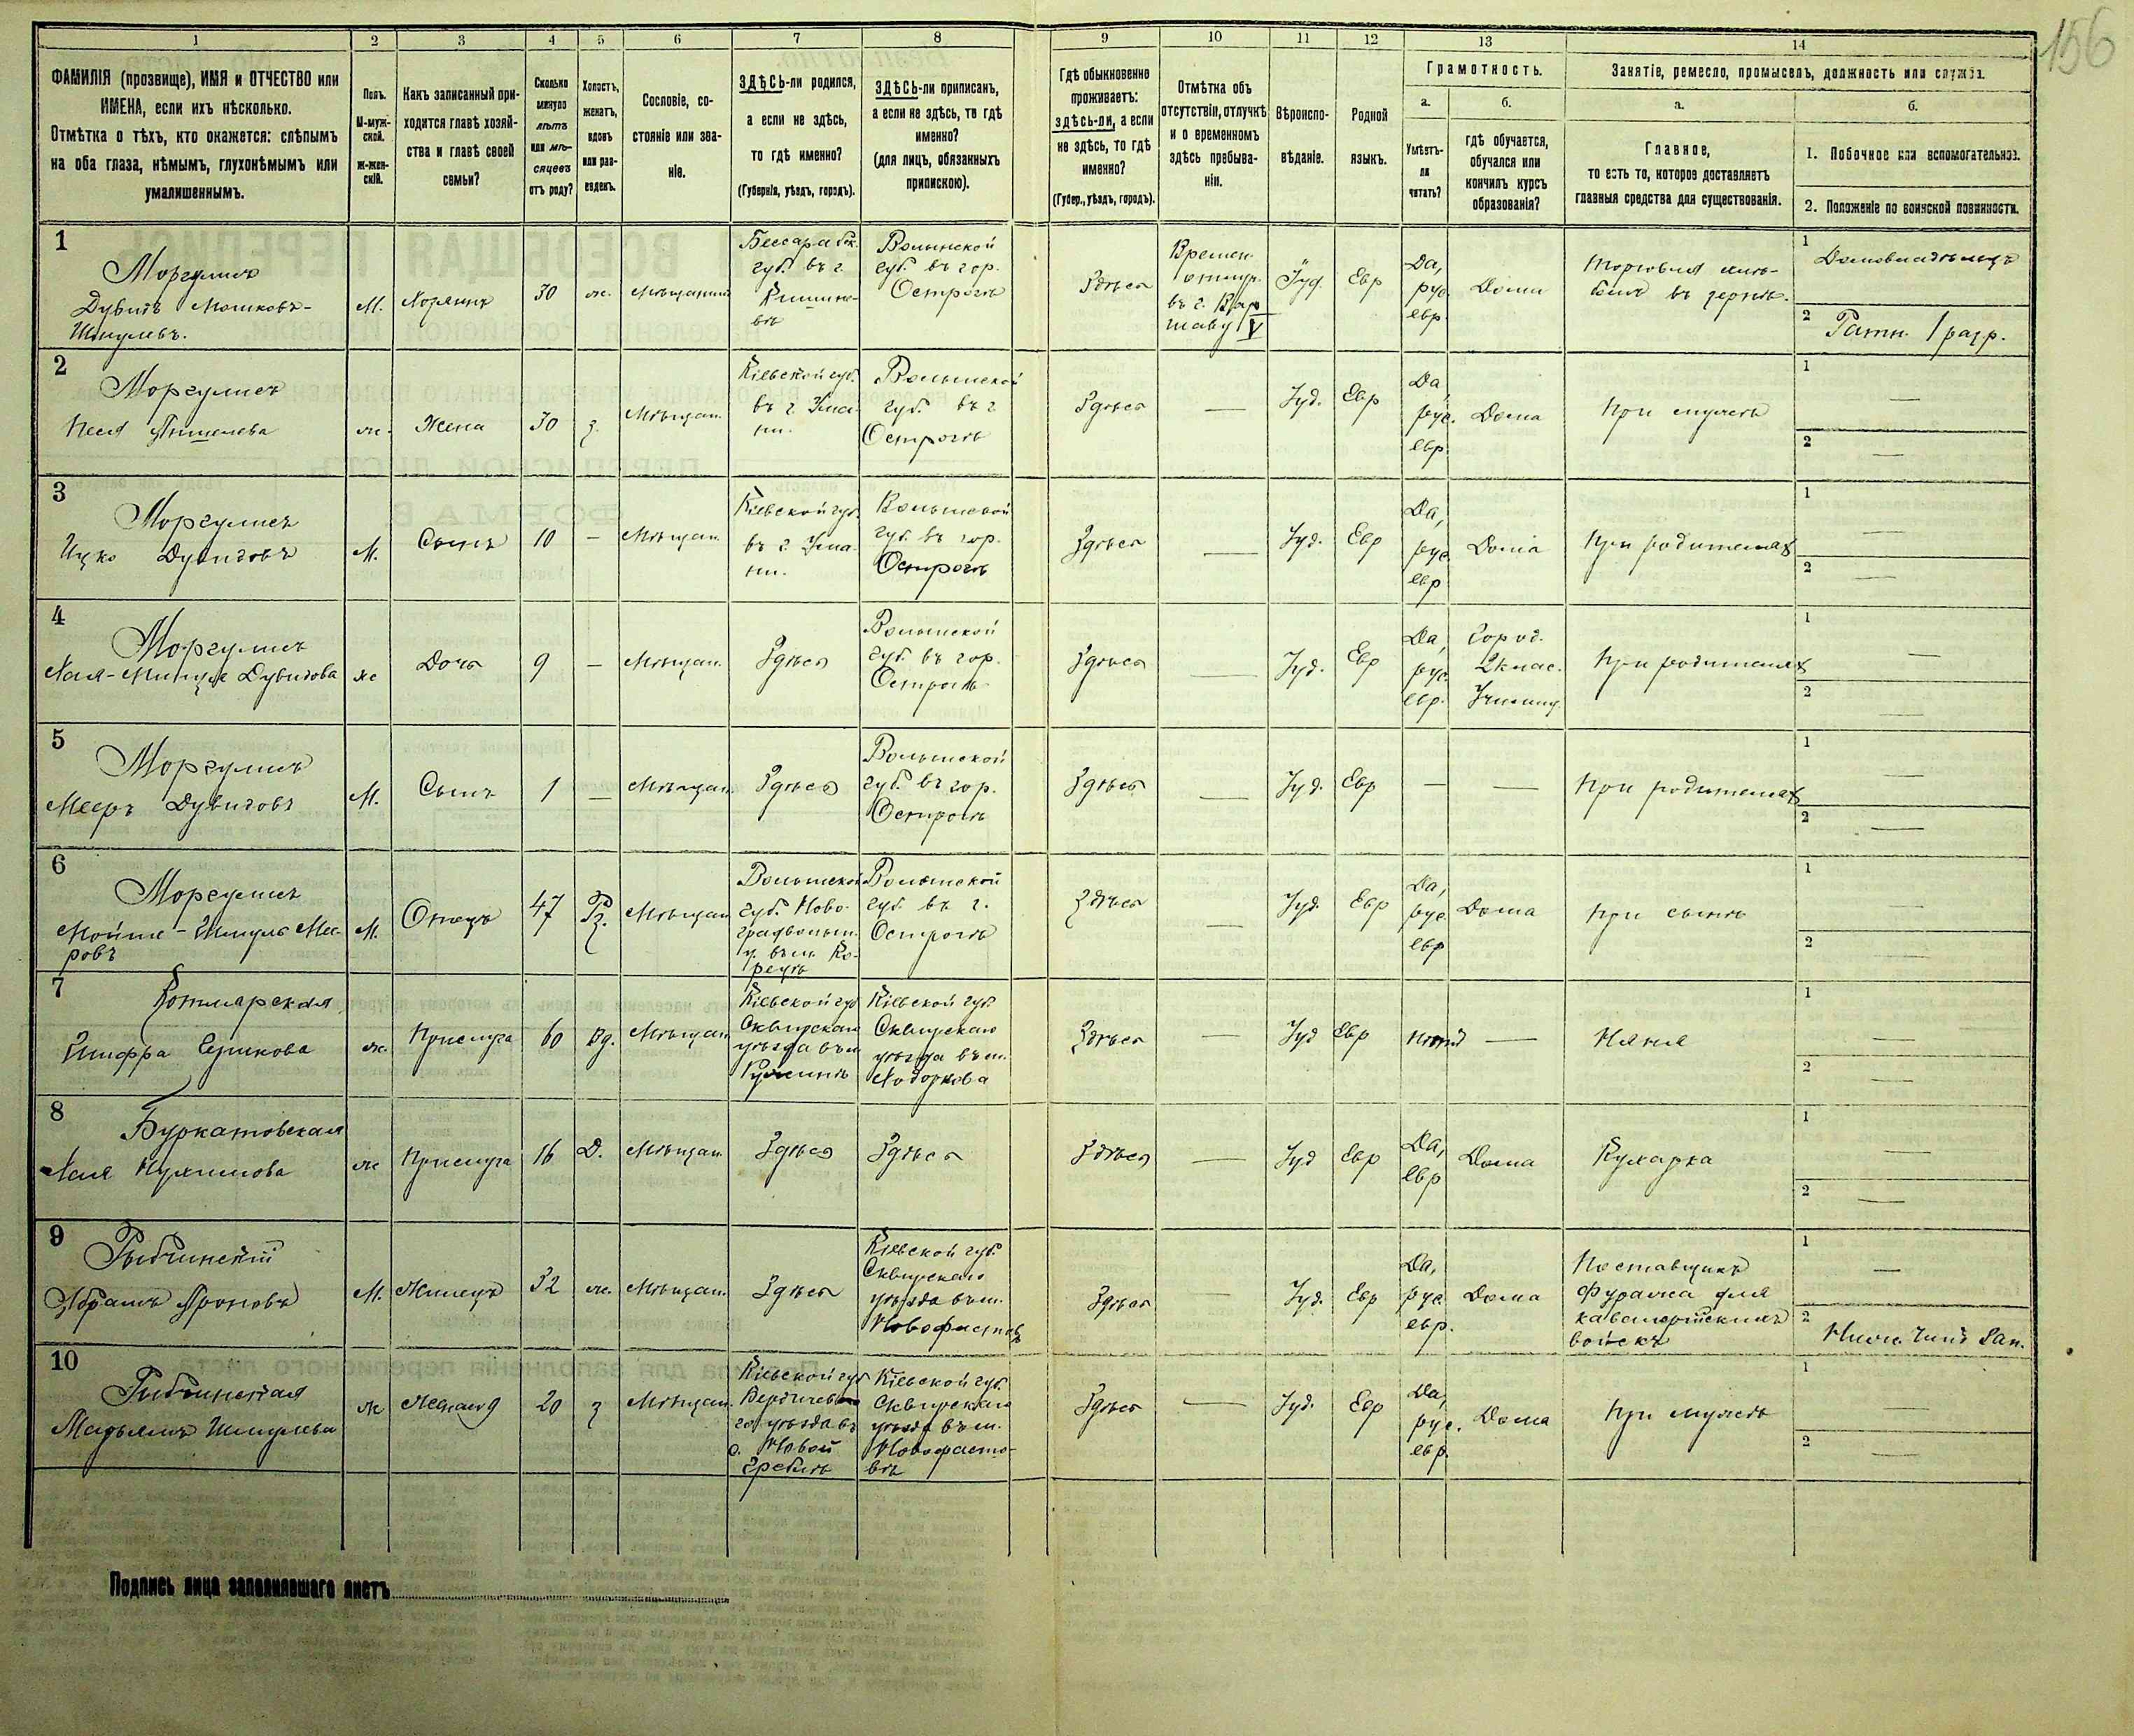 156
1 2 3 4 5 6 7 8 9 10 11 12 13 14
ФАМИЛІЯ (прозвище), ИМЯ и ОТЧЕСТВО или
ИМЕНА, если ихъ нѣсколько.
Отмѣтка о тѣхъ, кто окажется: слѣпымъ
на оба глаза, нѣмымъ, глухонѣмымъ или
умалишеннымъ.
Полъ.
М-муж-
ской.
Ж-жен-
скій.
Какъ записанный при-
ходится главѣ хозяй-
ства и главѣ своей
семьи?
Сколько
минуло
лѣтъ
или мѣ-
сяцевъ
отъ роду?
Холостъ,
женатъ,
вдовъ
или раз-
веденъ.
Сословіе, со-
стояніе или зва-
ніе.
ЗДѢСЬ-ли родился,
а если не здѣсь,
то гдѣ именно?
(Губернія, уѣздъ, городъ).
ЗДѢСЬ-ли приписанъ,
а если не здѣсь, то гдѣ
именно?
(для лицъ, обязанныхъ
припискою).
Гдѣ обыкновенно
проживаетъ:
здѣсь-ли, а если
не здѣсь, то гдѣ
именно?
(Губер., уѣздъ, городъ).
Отмѣтка объ
отсутствіи, отлучкѣ
и о временномъ
здѣсь пребыва-
ніи.
Вѣроиспо-
вѣданіе.
Родной
языкъ.
Грамотность.
а.
Умѣетъ-
ли
читать?
б.
гдѣ обучается,
обучался или
кончилъ курсъ
образованія?
Занятіе, ремесло, промыселъ, должность или служба.
а.
Главное,
то есть то, которое доставляетъ
главныя средства для существованія.
б.
1. Побочное или вспомогательное.
2. Положеніе по воинской повинности.
1
Моргулисъ
Дувидъ Мошковъ-
Шмулевъ.
М.
Хозяинъ
30
ж.
Мѣщанинъ
Бессарабск.
губ. въ г.
Кишине-
вѣ
Волынской
губ. въ гор.
Острогѣ
Здѣсь
Времен.
отлуч.
въ г. Вар
шаву V
Іуд.
Евр
Да,
рус.
евр.
Дома
Торговля хлѣ-
бомъ въ зернѣ.
1 Домовладѣлецъ
2 Ратн. 1 разр.
2
Моргулисъ
Песя
ж.
Жена
30
з.
Мѣщан.
Кіевской губ.
въ г. Ума-
ни.
Волынской
губ. въ г
Острогѣ
Здѣсь
—
Іуд.
Евр
Да
рус.
евр.
Дома
При мужѣ
1 —
2 —
3
Моргулисъ
Ицко Дувидовъ
М.
Сынъ
10
—
Мѣщан.
Кіевской губ.
въ г. Ума-
ни.
Волынской
губ. въ гор.
Острогѣ
Здѣсь
—
Іуд.
Евр
Да,
рус.
евр
Дома
При родителях
1 —
2 —
4
Моргулисъ
Дувидова
ж
Дочь
9
—
Мѣщан.
Здѣсь
Волынской
губ. въ гор.
Острогѣ
Здѣсь
—
Іуд.
Евр
Да,
рус.
евр.
Город.
2 клас.
Училищ.
При родителях
1 —
2 —
5
Моргулисъ
Мееръ Дувидовъ
М.
Сынъ
1
—
Мѣщан.
Здѣсь
Волынской
губ. въ гор.
Острогѣ
Здѣсь
—
Іуд.
Евр
—
—
При родителях
1 —
2 —
6
Моргулисъ
Мойше-Шмуль Мее-
ровъ
М.
Отецъ
47
Рз.
Мѣщан
Волынской
губ. Ново-
градволын.
у. въ м. Ко-
рецъ
Волынской
губ. въ г.
Острогѣ
Здѣсь
—
Іуд.
Евр
Да,
рус.
евр
Дома
При сынѣ
1 —
2 —
7
Котлярская
Шифра
ж.
Прислуга
60
вд.
Мѣщан
Кіевской губ
Сквирскаго
уѣзда въ м
Ружинѣ
Кіевской губ.
Сквирскаго
уѣзда въ м.
Ходоркова
Здѣсь
—
Іуд
Евр
—
Няня
1 —
2 —
8
Буркатовская
Хая
ж
Прислуга
16
Д.
Мѣщан
Здѣсь
Здѣсь
Здѣсь
—
Іуд
Евр
Да,
евр
Дома
Кухарка
1 —
2 —
9
Рыбчинскій
Абрамъ Ароновъ
М.
Жилецъ
32
ж.
Мѣщан.
Здѣсь
Кіевской губ.
Сквирскаго
уѣзда въ м.
Новофастовъ
Здѣсь
—
Іуд.
Евр
Да,
рус
евр.
Дома
Поставщикъ
фуража для
кавалерійскихъ
войскъ
1 —
2 Нижн. Чинъ Зап.
10
Рыбчинская
Марьямъ Шмулева
ж
20
з
Мѣщан.
Кіевской губ
Бердичевска
го уѣзда въ
с. Новой
Греблѣ
Кіевской губ.
Сквирскаго
уѣзда въ м.
Новофасто-
вѣ
Здѣсь
—
Іуд.
Евр
Да,
рус.
евр.
Дома
При мужѣ
1 —
2 —
Подпись лица заполнявшаго листъ